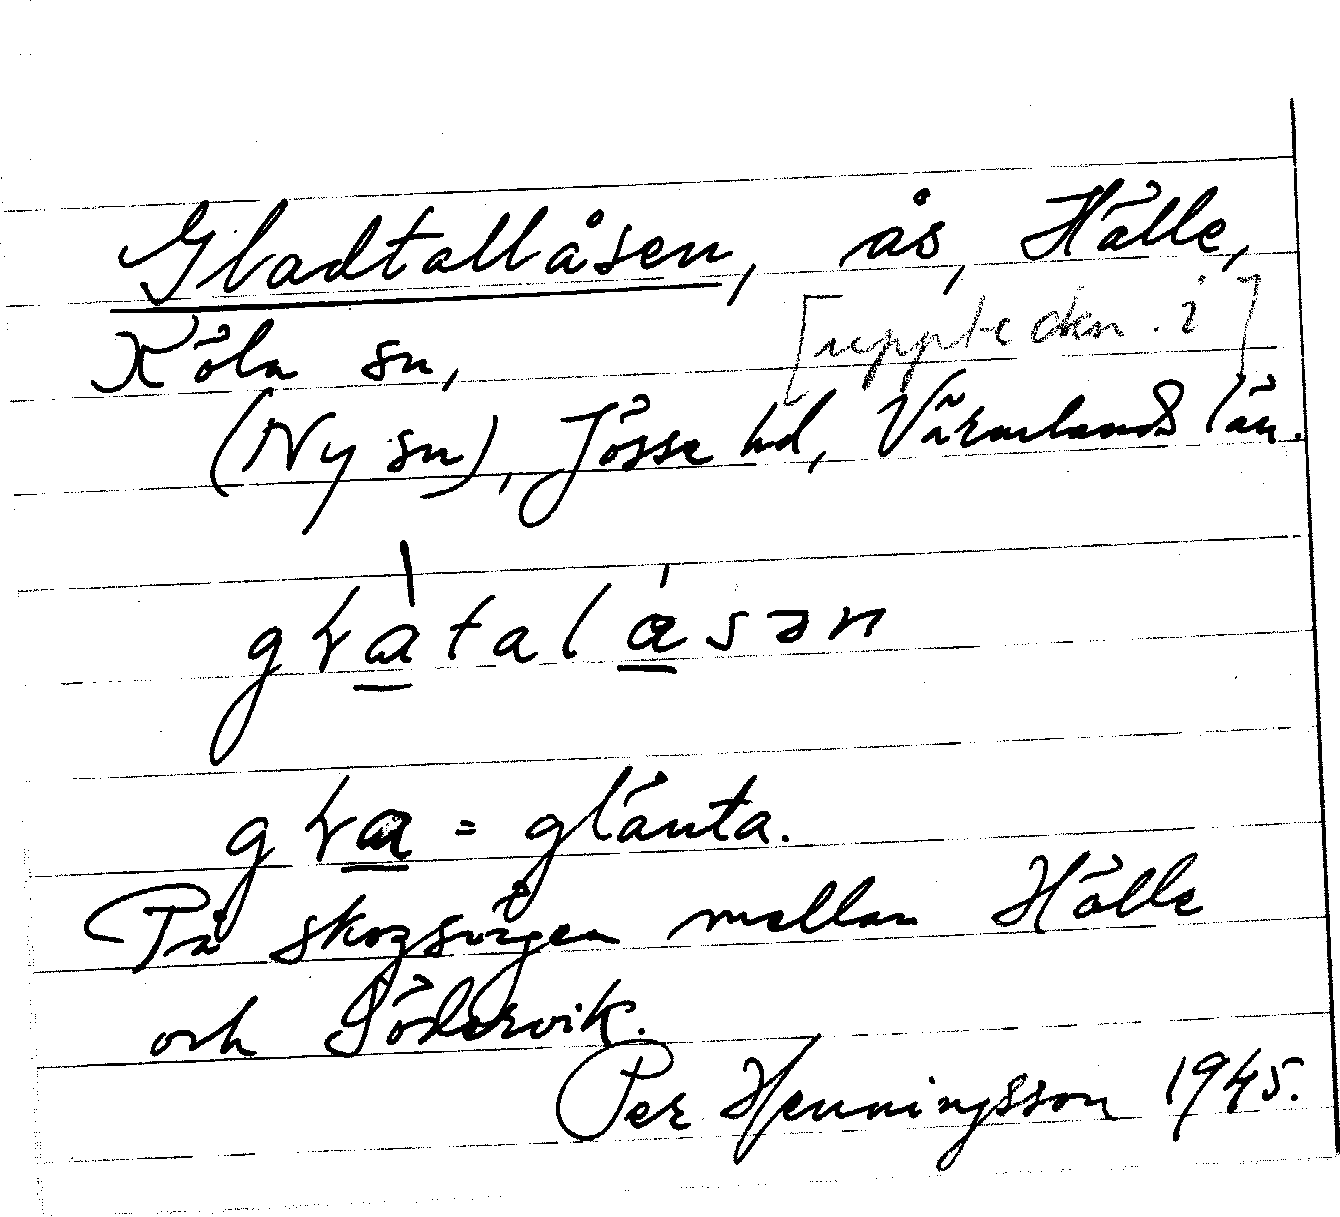 Gladtallåsen, ås, Hälle,
Köla sn, [uppteckn. i]
(Ny sn), Jösse hd, Värmlands län.
gɽa = glänta.
På skogsvägen mellan Hälle
och Södervik.
Per Henningsson 1945.